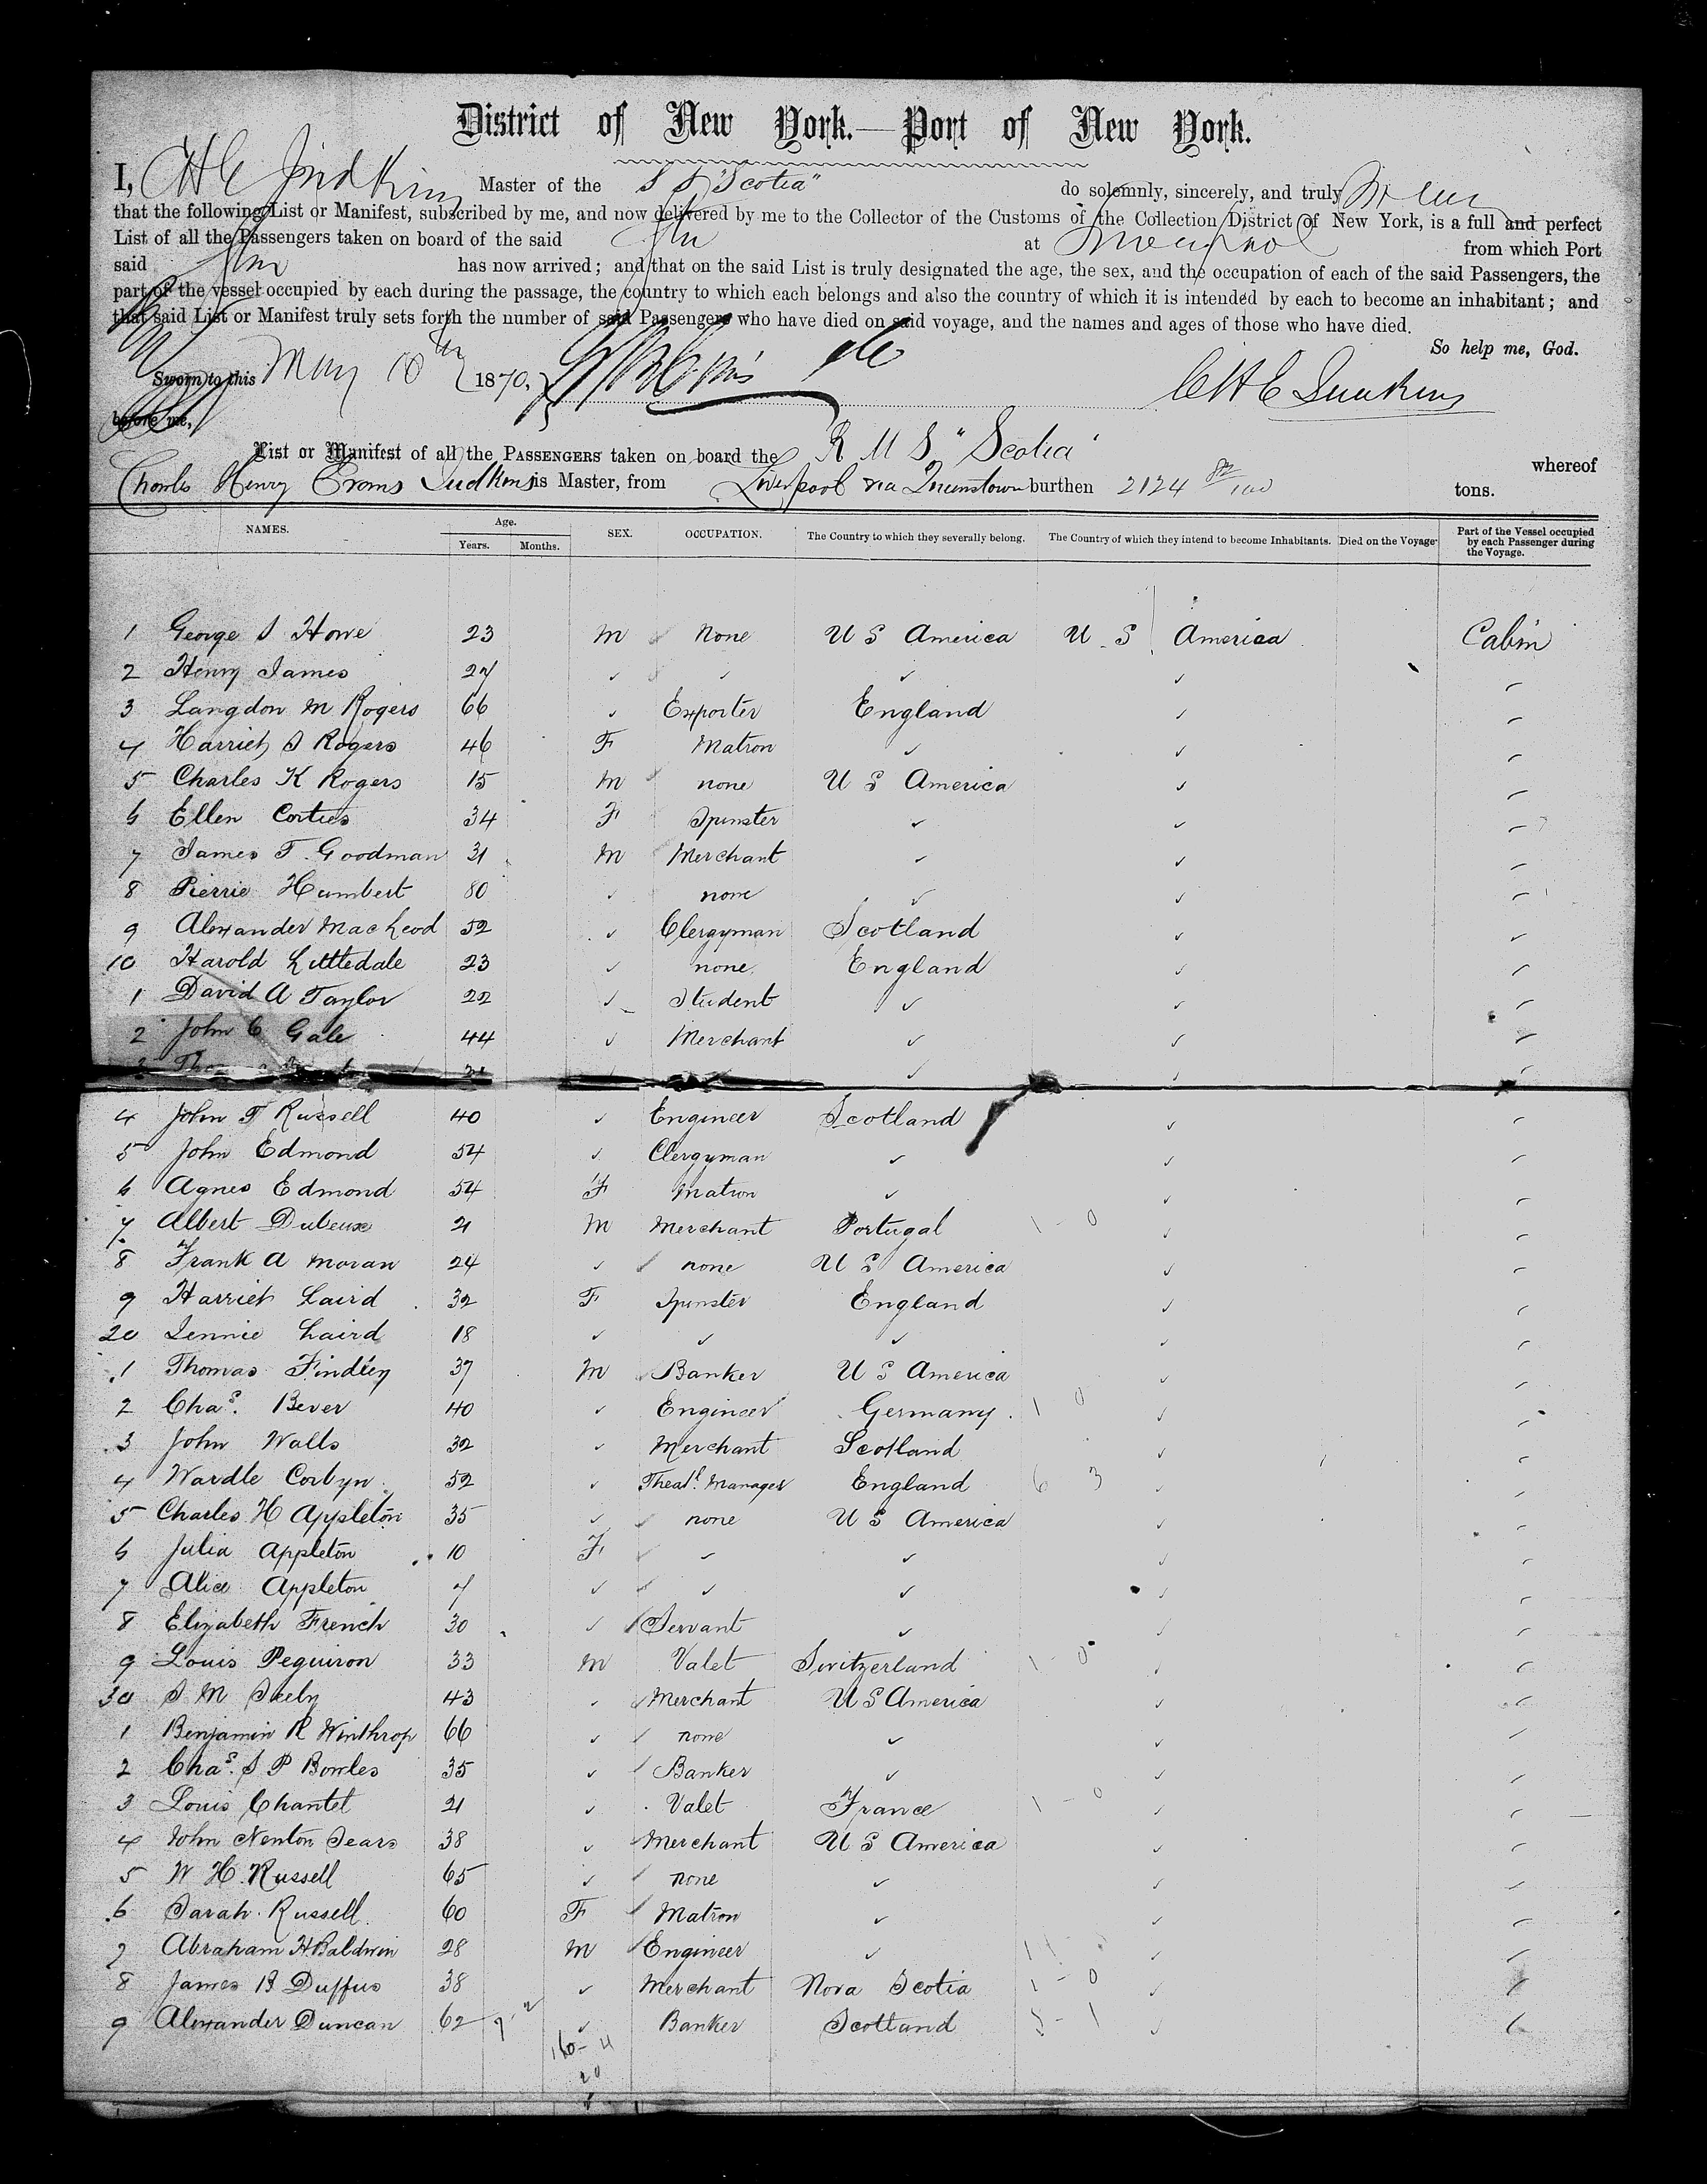 District of New York.—Port of New York.
I, C H E Judkins Master of the S S "Scotia" do solemnly, sincerely, and truly swear
that the following List or Manifest, subscribed by me, and now delivered by me to the Collector of the Customs of the Collection District of New York, is a full and perfect
List of all the Passengers taken on board of the said at Liverpool from which Port
said has now arrived; and that on the said List is truly designated the age, the sex, and the occupation of each of the said Passengers, the
part of the vessel occupied by each during the passage, the country to which each belongs and also the country of which it is intended by each to become an inhabitant; and
that said List or Manifest truly sets forth the number of said Passengers who have died on said voyage, and the names and ages of those who have died.
So help me, God.
Sworn to this May 10th 1870,
C H E Judkins
before me,
List or Manifest of all the PASSENGERS taken on board the R M S "Scotia" whereof
Charles Henry Evans Judkins is Master, from Liverpool via Queenstown burthen 2124 82/100 tons.
NAMES. Age. Years. Months. SEX. OCCUPATION. The Country to which they severally belong. The Country of which they intend to become Inhabitants. Died on the Voyage. Part of the Vessel occupied by each Passenger during the Voyage.
1 George S Howe 23 M None U S America U. S. America Cabin
2 Henry James 27 ✓ ✓ ✓ ✓ ✓
3 Langdon M Rogers 66 ✓ Exporter England ✓ ✓
4 Harriet S Rogers 46 F Matron ✓ ✓ ✓
5 Charles K Rogers 15 M none U S America ✓ ✓
6 Ellen Corties 34 F Spinster ✓ ✓ ✓
7 James T. Goodman 31 M Merchant ✓ ✓ ✓
8 Pierrie Humbert 80 ✓ none ✓ ✓ ✓
9 Alexander MacLeod 52 ✓ Clergyman Scotland ✓ ✓
10 Harold Littledale 23 ✓ none. England ✓ ✓
1 David A Taylor 22 ✓ Student ✓ ✓ ✓
2 John C Gale 44 ✓ Merchant ✓ ✓ ✓
3 ✓ ✓ ✓
4 John T Russell 40 ✓ Engineer Scotland ✓ ✓
5 John Edmond 54 ✓ Clergyman ✓ ✓ ✓
6 Agnes Edmond 54 F Matron ✓ ✓ ✓
7 Albert Dubeux 21 M Merchant Portugal 1 - 0 ✓ ✓
8 Frank A Moran 24 ✓ none U S America ✓ ✓
9 Harriet Laird 32 F Spinster England ✓ ✓
20 Jennie Laird 18 ✓ ✓ ✓ ✓ ✓
1 Thomas Findley 37 M Banker U S America ✓ ✓
2 Chas. Bever 40 ✓ Engineer Germany. 1 0 ✓ ✓
3 John Walls 32 ✓ Merchant Scotland ✓ ✓
4 Wardle Corbyn 52 ✓ Theatl. Manager England 6 3 ✓ ✓
5 Charles H Appleton 35 ✓ none U S America ✓ ✓
6 Julia Appleton 10 F ✓ ✓ ✓ ✓
7 Alice Appleton 7 ✓ ✓ ✓ ✓ ✓
8 Elizabeth French 30 ✓ Servant ✓ ✓ ✓
9 Louis Peguiron 33 M Valet Switzerland 1 - 0 ✓ ✓
30 S M Seely 43 ✓ Merchant U S America ✓ ✓
1 Benjamin R Winthrop 66 ✓ none ✓ ✓ ✓
2 Chas. S P Bowles 35 ✓ Banker ✓ ✓ ✓
3 Louis Chantel 21 ✓ Valet France 1 - 0 ✓ ✓
4 John Newton Sears 38 ✓ Merchant U S America ✓ ✓
5 W H. Russell 65 ✓ none ✓ ✓ ✓
6 Sarah Russell. 60 F Matron ✓ ✓ ✓
7 Abraham H Baldwin 28 M Engineer ✓ ✓ ✓
8 James B Duffus 38 ✓ Merchant Nova Scotia 1 - 0 ✓ ✓
9 Alexander Duncan 62 ✓ Banker Scotland 5 - 1 ✓ ✓
16 - 4
20